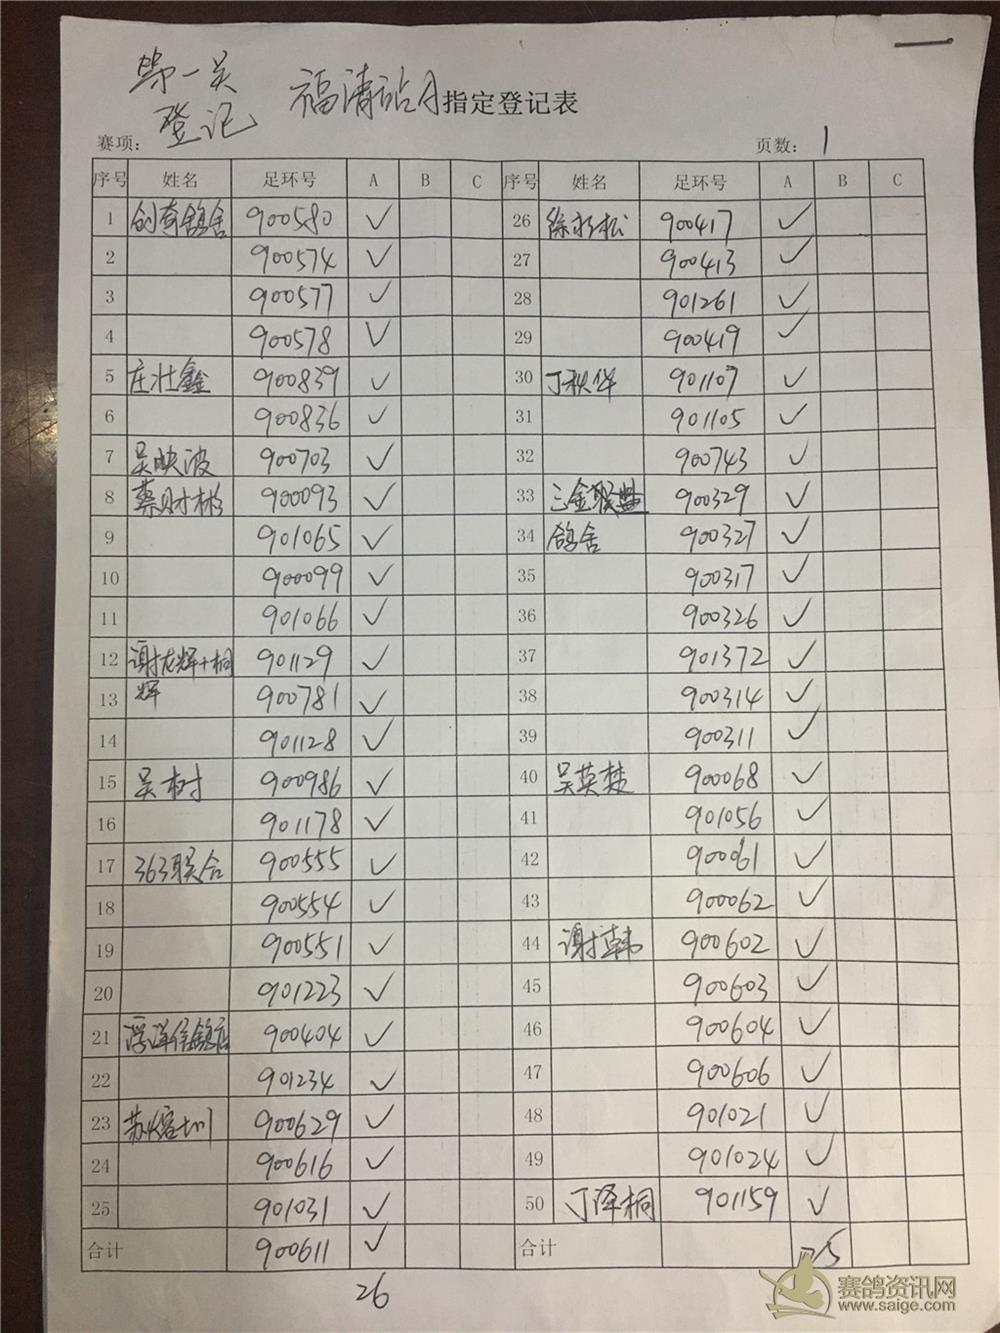 第一关
登记
福清站 指定登记表
赛项:
页数: 1
序号 姓名 足环号 A B C 序号 姓名 足环号 A B C
1 创奇鸽舍 900580 ✓ 26 徐杉松 900417 ✓
2 900574 ✓ 27 900413 ✓
3 900577 ✓ 28 901261 ✓
4 900578 ✓ 29 900419 ✓
5 庄壮鑫 900839 ✓ 30 丁秋华 901107 ✓
6 900836 ✓ 31 901105 ✓
7 吴映波 900703 ✓ 32 900743 ✓
8 蔡财彬 900093 ✓ 33 三金联盟 900329 ✓
9 901065 ✓ 34 鸽舍 900327 ✓
10 900099 ✓ 35 900317 ✓
11 901066 ✓ 36 900326 ✓
12 谢友辉+桐 901129 ✓ 37 901372 ✓
13 辉 900781 ✓ 38 900314 ✓
14 901128 ✓ 39 900311 ✓
15 吴树 900986 ✓ 40 吴英楚 900068 ✓
16 901178 ✓ 41 901056 ✓
17 363联合 900555 ✓ 42 900061 ✓
18 900554 ✓ 43 900062 ✓
19 900551 ✓ 44 谢韩 900602 ✓
20 901223 ✓ 45 900603 ✓
21 浮洋 900404 ✓ 46 900604 ✓
22 901234 ✓ 47 900606 ✓
23 苏 900629 ✓ 48 901021 ✓
24 900616 ✓ 49 901024 ✓
25 901031 ✓ 50 丁泽桐 901159 ✓
合计 900611 ✓ 合计 25
26
赛鸽资讯网
www.saige.com